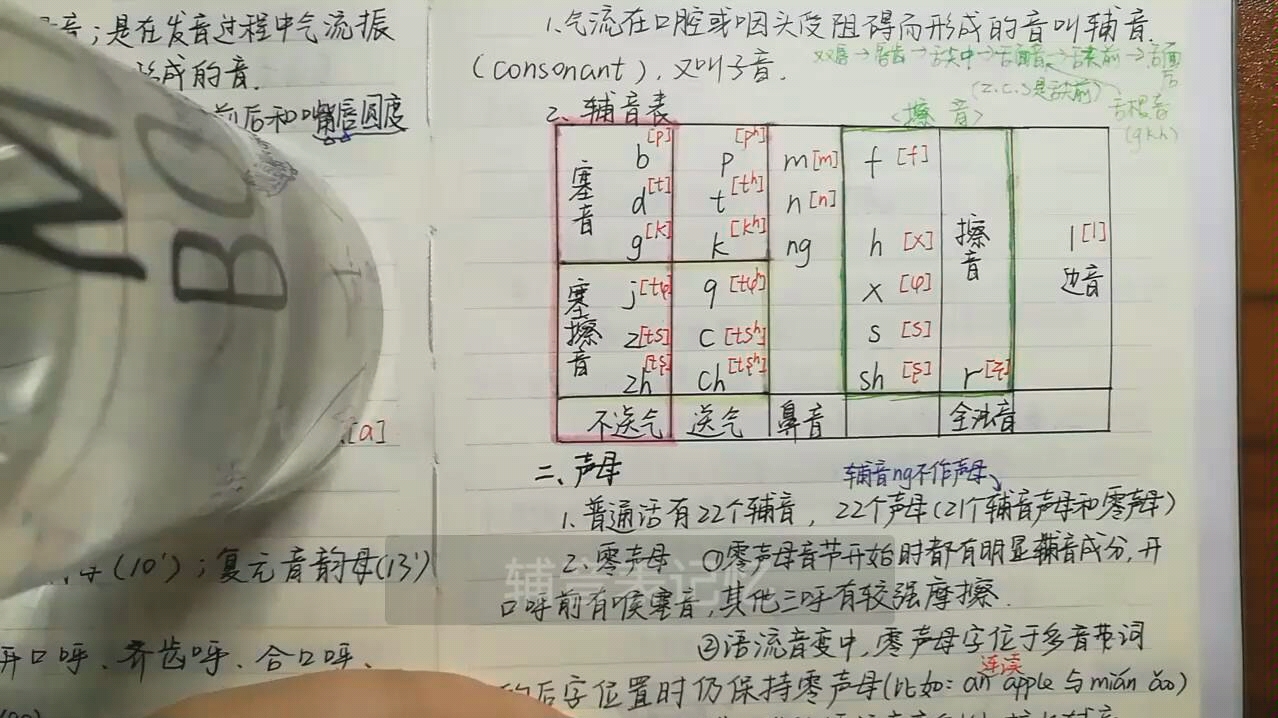 音；是在发音过程中气流振
形成的音.
前后和嘴唇圆度
[a]
(10')；复元音韵母(13')
开口呼、齐齿呼、合口呼、
1.气流在口腔或咽头受阻碍而形成的音叫辅音.
(consonant)，又叫子音.
双唇→唇齿→舌尖中→舌面音→舌尖前→舌面后
(z.c.s是舌尖前)
舌根音
(gkh)
2.辅音表
<擦音>
塞音
b [p] p [pʰ] m[m] f [f]
d [t] t [tʰ] n [n]
g [k] k [kʰ] ng h [x] 擦音 l [l]
边音
塞擦音
j [tɕ] q [tɕʰ] x [ɕ]
z[ts] c [tsʰ] s [s]
zh [tʂ] ch [tʂʰ] sh [ʂ] r[ʐ]
不送气 送气 鼻音 全浊音
二、声母
辅音ng不作声母
1.普通话有22个辅音，22个声母(21个辅音声母和零声母)
2.零声母 ①零声母音节开始时都有明显辅音成分,开
口呼前有喉塞音,其他三呼有较强摩擦.
②语流音变中,零声母字位于多音节词
的后字位置时仍保持零声母(比如:an apple 与mián ǎo)
连读
辅音表记忆